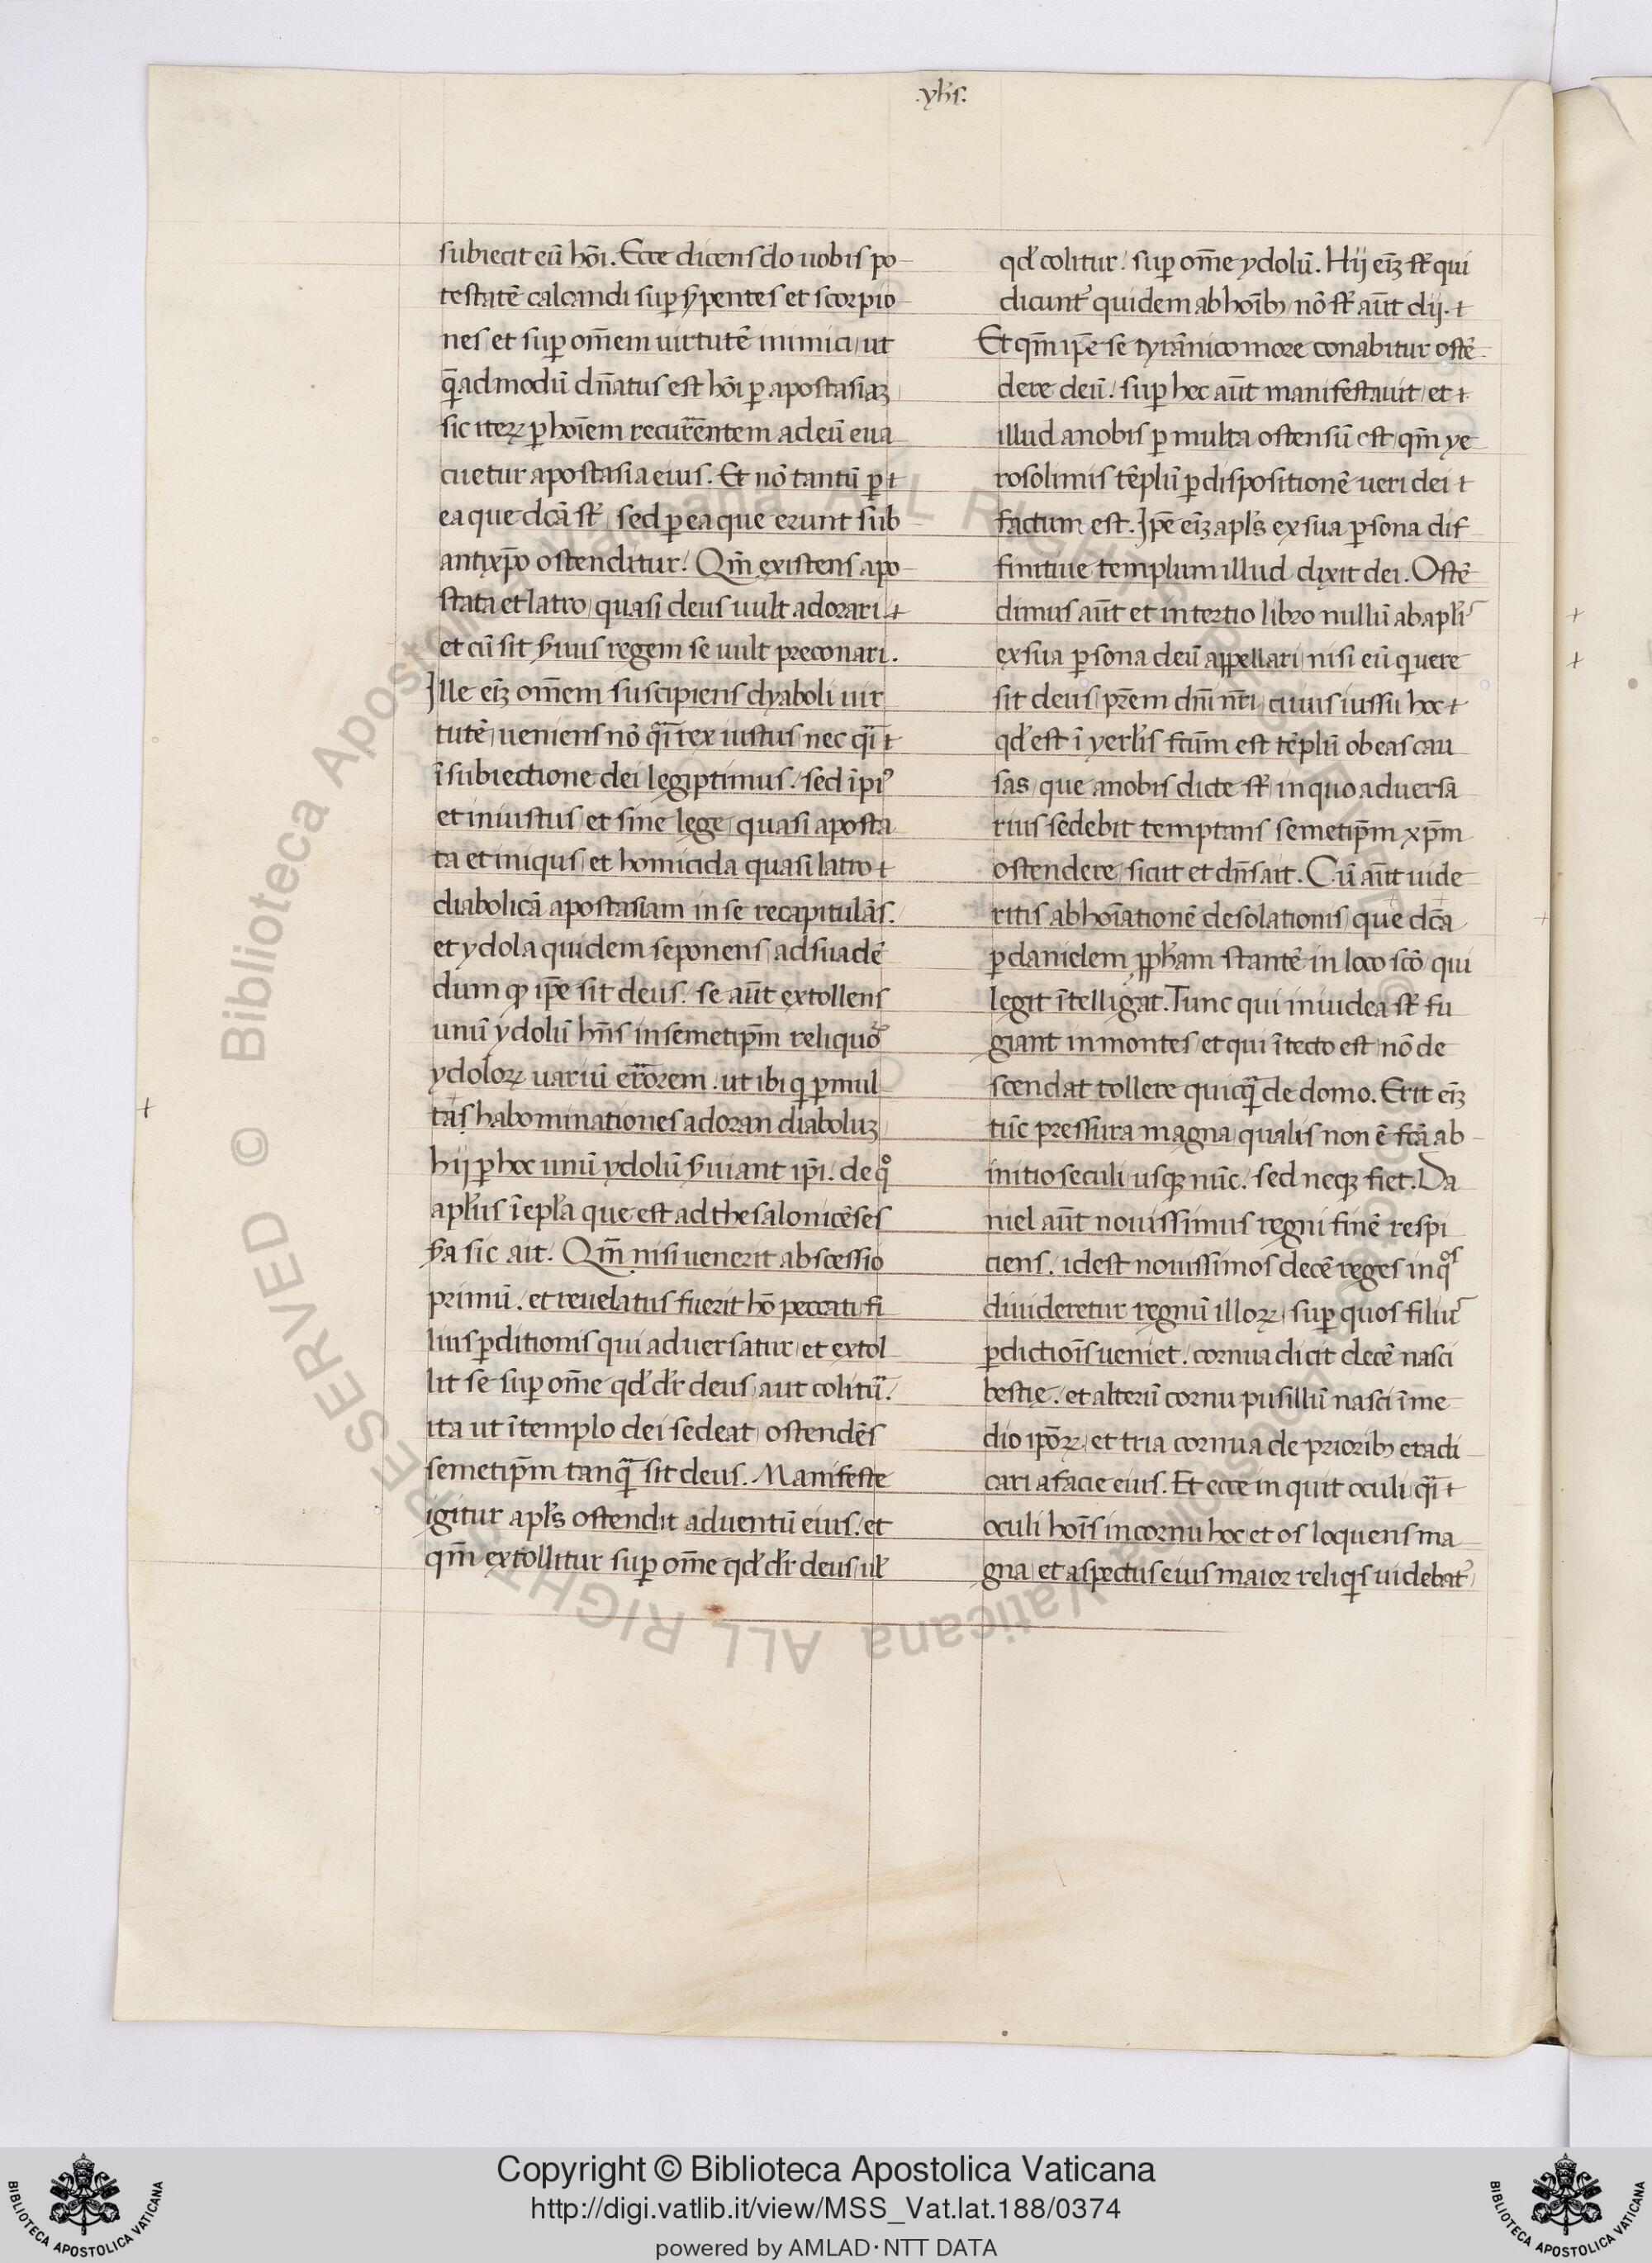 .yhs̄.
subiecit eū hōi. Ecce dicens do uobis po-
testatē calcandi sup̱ s̄pentes et scorpio-
nes et sup̱ om̄em uirtutē inimici, ut
q̄ admodū dn̄atus est hōi p̱ apostasiaꝫ,
sic iteꝝ p̱ hoīem recurrentem ad eū eua-
cuetur apostasia eius. Et nō tantū p̱ ɫ
ea que dcā st̄, sed p̱ ea que erunt sub
antixp̄o ostenditur. Qm̄ existens apo-
stata et latro, quasi deus uult adorari. ɫ
et cū sit s̄uus regem se uult preconari.
Ille eīꝫ om̄em suscipiens dyaboli uir
tutē, ueniens nō q̄i rex iustus, nec q̄i ɫ
ī subiectione dei legiptimus. sed īpiꝰ
et iniustus, et sine lege, quasi aposta
ta et iniqus, et homicida quasi latro ɫ
diabolicā apostasiam in se recapitulās.
et ydola quidem seponens, ad suadē
dum ꝙ ip̄e sit deus. se aūt extollens
unū ydolū hn̄s in semetip̄m reliquoꝝ
ydoloꝝ uariū errorem. ut ibi qi p̱ mul
tas habominationes adoran diaboluꝫ,
hij p̱ hoc unū ydolū s̄uiant ip̄i. de qͦ
apl̄us ī epl̄a que est ad thesalonicēses
s̄a sic ait. Qm̄ nisi uenerit abscessio
primū. et reuelatus fuerit hō peccati fi
lius p̱ditionis qui aduersatur, et extol
lit se sup̱ om̄e qd̄ dr̄ deus, aut colitur.
ita ut ī templo dei sedeat, ostendēs
semetip̄m tanq̄ sit deus. Manifeste
igitur apl̄s ostendit aduentū eius. et
qm̄ extollitur sup̱ om̄e qd̄ dr̄ deus, ul̄
qd̄ colitur. sup̱ om̄e ydolū. Hij eīꝫ st̄ qui
dicunt᷑ quidem ab hoībꝫ, nō st̄ aūt dij. ɫ
Et qm̄ ip̄e se tyrānico more conabitur ostē-
dere deū. sup̱ hec aūt manifestauit, et ɫ
illud a nobis p̱ multa ostensū est, qm̄ ye-
rosolimis tēplū p̱ dispositionē ueri dei ɫ
factum est. Ip̄e eīꝫ apl̄s ex sua p̱sona dif-
finitiue templum illud dixit dei. Ostē-
dimus aūt et in tertio libro nullū ab apl̄is
ex sua p̱sona deū appellari, nisi eū q uere
sit deus, pr̄em dn̄i nr̄i, cuius iussu hoc ɫ
qd̄ est ī yerl̄is fc̄um est tēplū ob eas cau
sas, que a nobis dicte st̄, in quo aduersa
rius sedebit temptans semetip̄m xp̄m
ostendere, sicut et dn̄s ait. Cū aūt uide
ritis abhoīationē desolationis, que dc̄a
p̱ danielem ꝓph̄am stantē in loco sc̄o qui
legit ītelligat. Tunc qui in iudea st̄ fu
giant in montes, et qui ī tecto est, nō de
scendat tollere quicq̄ de domo. Erit eīꝫ
tūc pressura magna, qualis non ē fcā ab-
initio seculi, usqꝫ nūc. sed neqꝫ fiet. Da
niel aūt nouissimus regni finē respi
ciens. idest nouissimos decē reges in qͦs
diuideretur regnū illoꝝ, sup̱ quos filius
p̱dictioīs ueniet. cornua dicit decē nasci
bestię. et alterū cornu pusillū nasci ī me
dio ip̄oꝝ, et tria cornua de prioribꝫ eradi
cari a facie eius. Et ecce inquit oculi, q̄i ɫ
oculi hoīs in cornu hoc et os loquens ma
gna, et aspectus eius maior reliqis uidebat᷑,
© Biblioteca Apostolica Vaticana ALL RIGHTS RESERVED
Copyright © Biblioteca Apostolica Vaticana
http://digi.vatlib.it/view/MSS_Vat.lat.188/0374
powered by AMLAD·NTT DATA
BIBLIOTECA APOSTOLICA VATICANA
BIBLIOTECA APOSTOLICA VATICANA